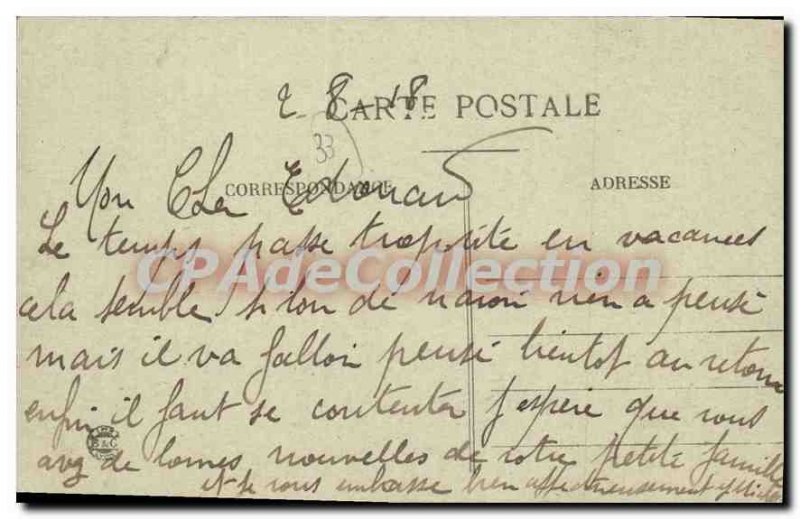 2 8 - 18
CARTE POSTALE
33
CORRESPONDANCE
ADRESSE
Mon Cher Edouard
Le temps passe trop vite en vacances
cela semble si bon de n'avoir rien a pensé
mais il va falloir pensé bientot au retour
enfin il faut se contenter j'espere que vous
avez de bonnes nouvelles de votre petite famille
et je vous embrasse bien affectueusement
CPAdeCollection.com
B&G